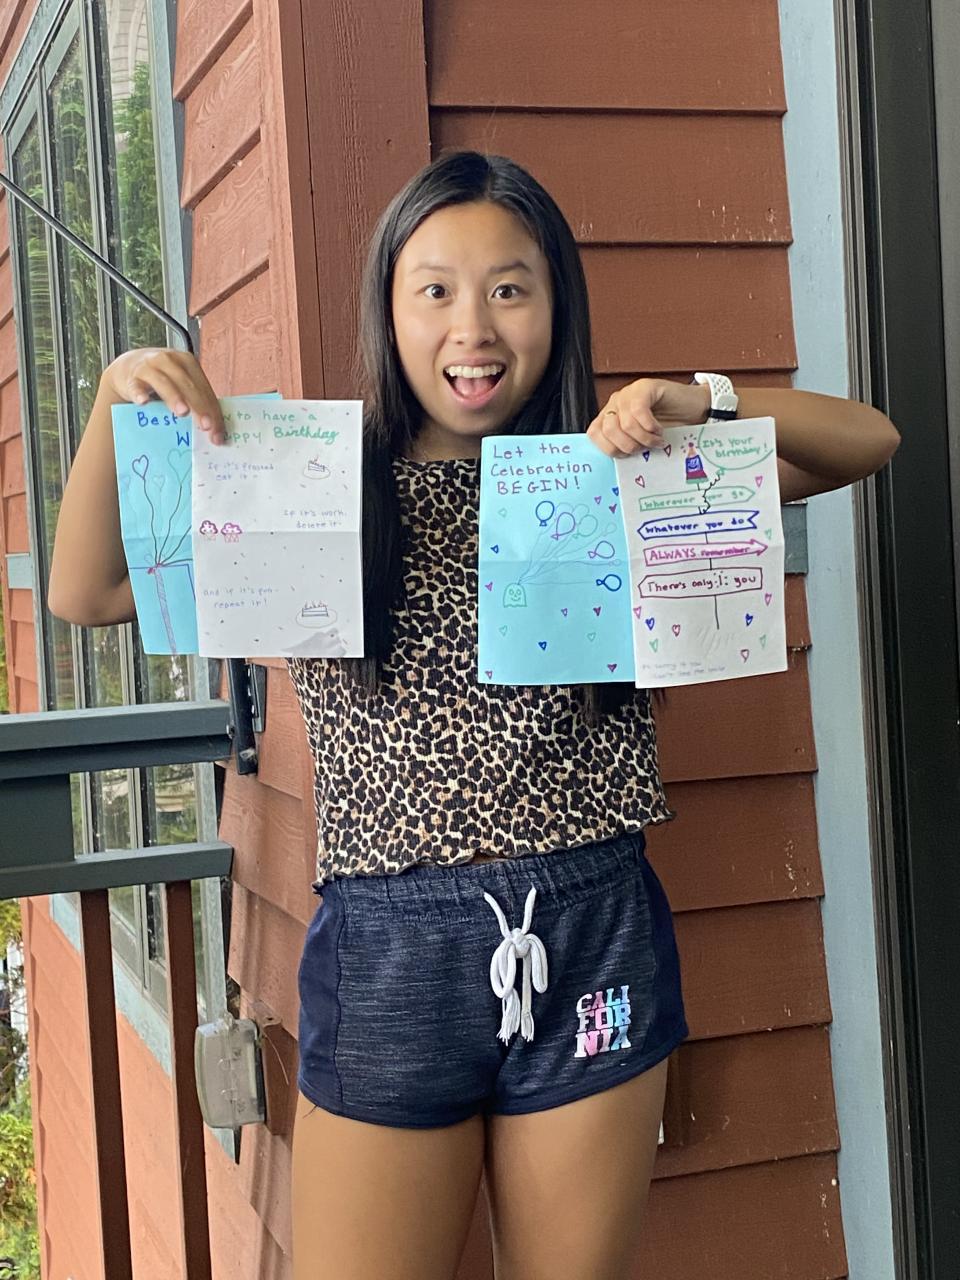 Best
W
to have a
Happy Birthday
If it's frosted
eat it -
If it's work,
delete it-
and if it's fun -
repeat it!
Let the
Celebration
BEGIN!
It's your
birthday!
wherever you go
Whatever you do
ALWAYS remember
There's only 1 you
PS sorry if you
can't see the
CALI
FOR
NIA